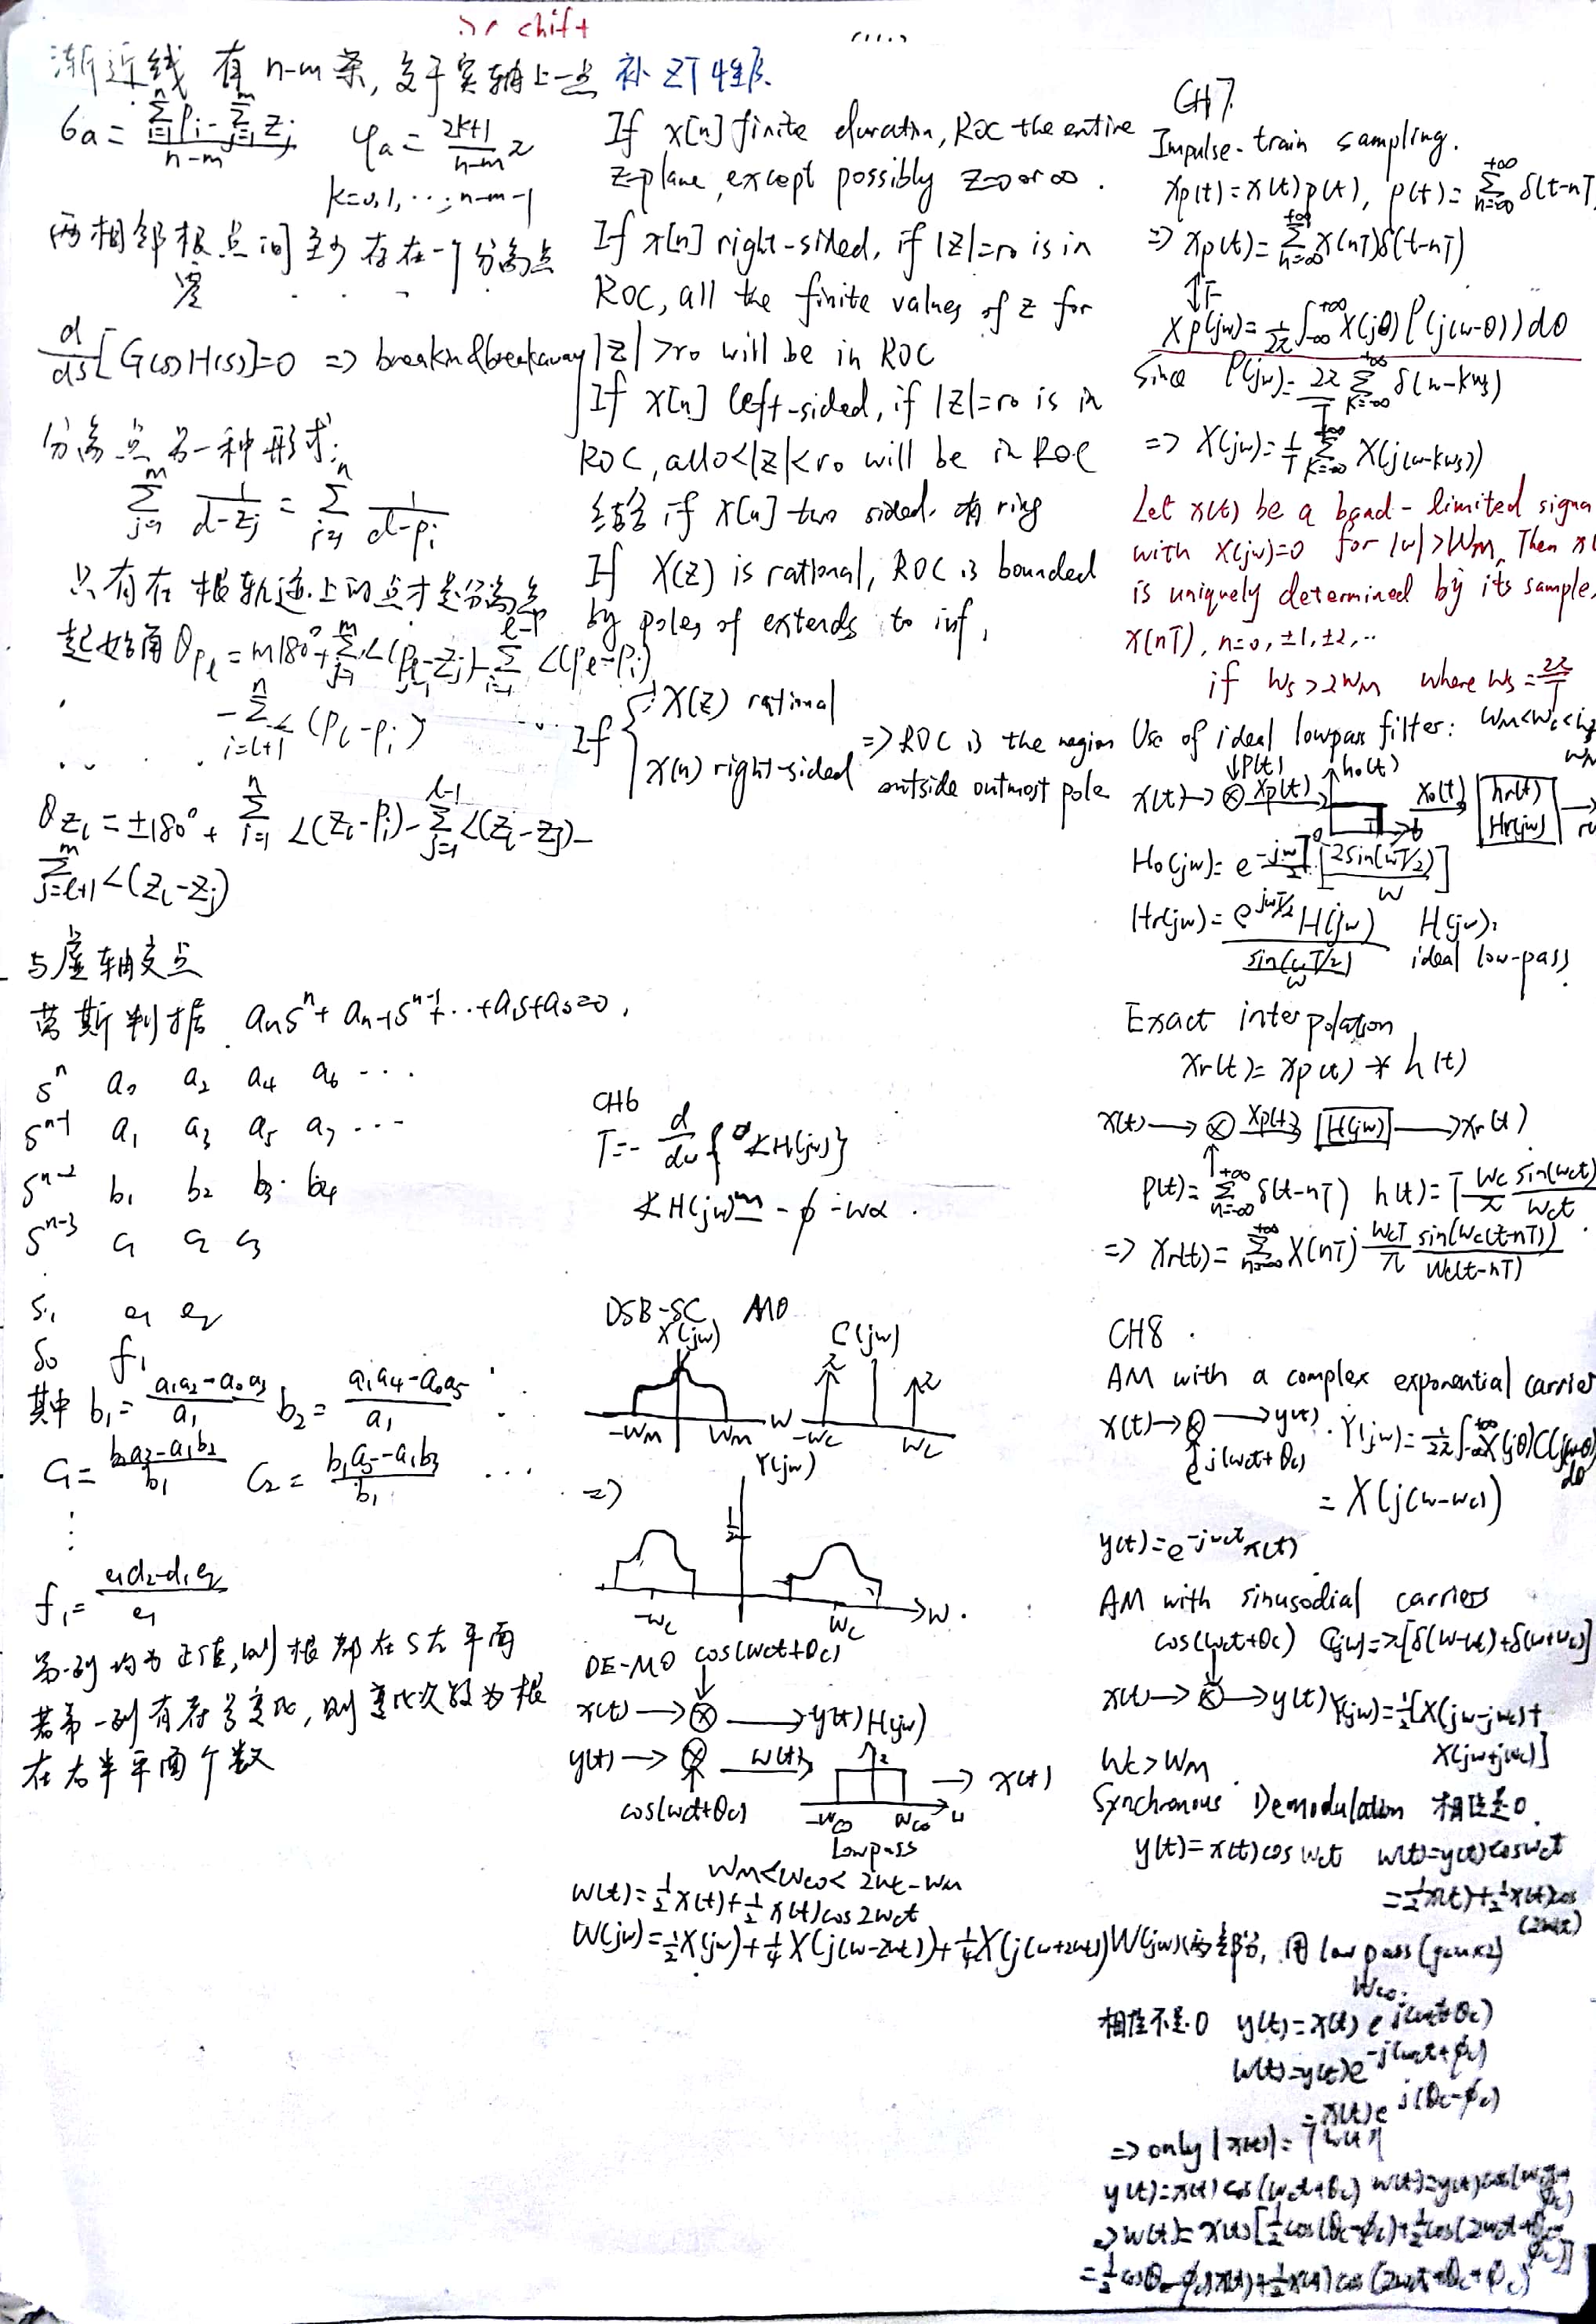 shift
渐近线 有 n-m 条, 交于实轴上一点
σa = (Σ_{i=1}^{n} Pi - Σ_{j=1}^{m} Zj)/(n-m)  φa = (2k+1)/(n-m) π
k=0,1,…,n-m-1
两相邻极点间至少存在一个分离点
零
d/ds[G(s)H(s)]=0 => breakin&breakaway
分离点另一种形式:
Σ_{j=1}^{m} 1/(d-zj) = Σ_{i=1}^{n} 1/(d-pi)
只有在根轨迹上的点才是分离点
起始角 θpl = m180°+Σ_{j=1}^{m}∠(pl-zj)-Σ_{i=1}^{l-1}∠(pl-pi)
-Σ_{i=l+1}^{n}∠(pl-pi)
θzl = ±180°+Σ_{i=1}^{n}∠(zl-pi)-Σ_{j=1}^{l-1}∠(zl-zj)-
Σ_{j=l+1}^{m}∠(zl-zj)
与虚轴交点
劳斯判据 a_n s^n + a_{n-1} s^{n-1}+…+a1s+a0=0,
s^n a0 a2 a4 a6 …
s^{n-1} a1 a3 a5 a7 …
s^{n-2} b1 b2 b3 b4
s^{n-3} c1 c2 c3
s1 e1 e2
s0 f1
其中 b1=(a1a2-a0a3)/a1 b2=(a1a4-a0a5)/a1 …
c1=(b1a3-a1b2)/b1 c2=(b1a5-a1b3)/b1 …
f1=(e1d2-d1e2)/e1
第一列均为正值,则根都在S左平面
若第一列有符号变化,则变化次数为根
在右半平面个数
补 ZT 性质.
If x[n] finite duration, ROC the entire
z-plane, except possibly z=0 or ∞.
If x[n] right-sided, if |z|=r0 is in
ROC, all the finite values of z for
|z|>r0 will be in ROC
If x[n] left-sided, if |z|=r0 is in
ROC, all 0<|z|<r0 will be in ROC
结合 if x[n] two sided. 有 ring
If X(z) is rational, ROC is bounded
by poles of extends to inf,
If { X(z) rational
x(n) right-sided => ROC is the region
outside outmost pole
CH6
T=- d/dw {∠H(jw)}
∠H(jw) = -φ-wα.
DSB-SC MO
X(jw) C(jw)
π π
-wM wM w -wc wc
=> Y(jw)
1/2
-wc wc w.
DE-MO cos(wct+θc)
x(t) → ⊗ → y(t) H(jw)
y(t) → ⊗ w(t) → 2 → x(t)
cos(wct+θc) -wco wco w
Lowpass
wM<wco<2wc-wM
w(t)=1/2 x(t)+1/2 x(t)cos2wct
W(jw)=1/2X(jw)+1/4X(j(w-2wc))+1/4X(j(w+2wc))
CH7
Impulse-train sampling.
xp(t)=x(t)p(t), p(t)=Σ_{n=-∞}^{+∞} δ(t-nT
=> xp(t)=Σ_{n=-∞}^{+∞} x(nT)δ(t-nT)
↕F
Xp(jw)=1/2π ∫_{-∞}^{+∞} X(jθ)P(j(w-θ))dθ
Since P(jw)=2π/T Σ_{k=-∞}^{+∞} δ(w-kws)
=> X(jw)=1/T Σ_{k=-∞}^{+∞} X(j(w-kws))
Let x(t) be a band-limited signa
with X(jw)=0 for |w|>wM, Then x(
is uniquely determined by its sample,
x(nT), n=0,±1,±2,…
if ws>2wM where ws=2π/T
Use of ideal lowpass filter: wM<wc<ws
↓p(t) ↑h0(t)
x(t) → ⊗ xp(t) → x0(t) → hr(t)
Hr(jw)
H0(jw)=e^{-jwT/2}[2sin(wT/2)/w]
Hr(jw)=e^{jwT/2}H(jw)/(sin(wT/2)/w) H(jw):
ideal low-pass
Exact interpolation
xr(t)=xp(t)*h(t)
x(t) → ⊗ xp(t) → H(jw) → xr(t)
p(t)=Σ_{n=-∞}^{+∞} δ(t-nT) h(t)=T wc/π sin(wct)/wct
=> xr(t)=Σ_{n=-∞}^{+∞} x(nT) wcT/π sin(wc(t-nT))/wc(t-nT)
CH8
AM with a complex exponential carrier
x(t) → ⊗ → y(t). Y(jw)=1/2π ∫_{-∞}^{+∞} X(jθ)C(j(w-θ))dθ
e^{j(wct+θc)}
= X(j(w-wc))
y(t)=e^{-jwct}x(t)
AM with sinusodial carriers
cos(wct+θc) C(jw)=π[δ(w-wc)+δ(w+wc)]
x(t) → ⊗ → y(t) Y(jw)=1/2[X(jw-jwc)+
wc>wM X(jw+jwc)]
Synchronous Demodulation 相位是0.
y(t)=x(t)cos wct w(t)=y(t)coswct
=1/2x(t)+1/2x(t)cos
(2wct)
W(jw), 用 low pass (gain×2)
wco.
相位不是0 y(t)=x(t)e^{j(wct+θc)}
w(t)=y(t)e^{-j(wct+φc)}
=x(t)e^{j(θc-φc)}
=> only |x(t)|=|w(t)|
y(t)=x(t)cos(wct+θc) w(t)=y(t)cos(wct+φc)
=> w(t)=x(t)[1/2cos(θc-φc)+1/2cos(2wct+θc+φc)]
=1/2cos(θc-φc)x(t)+1/2x(t)cos(2wct+θc+φc)